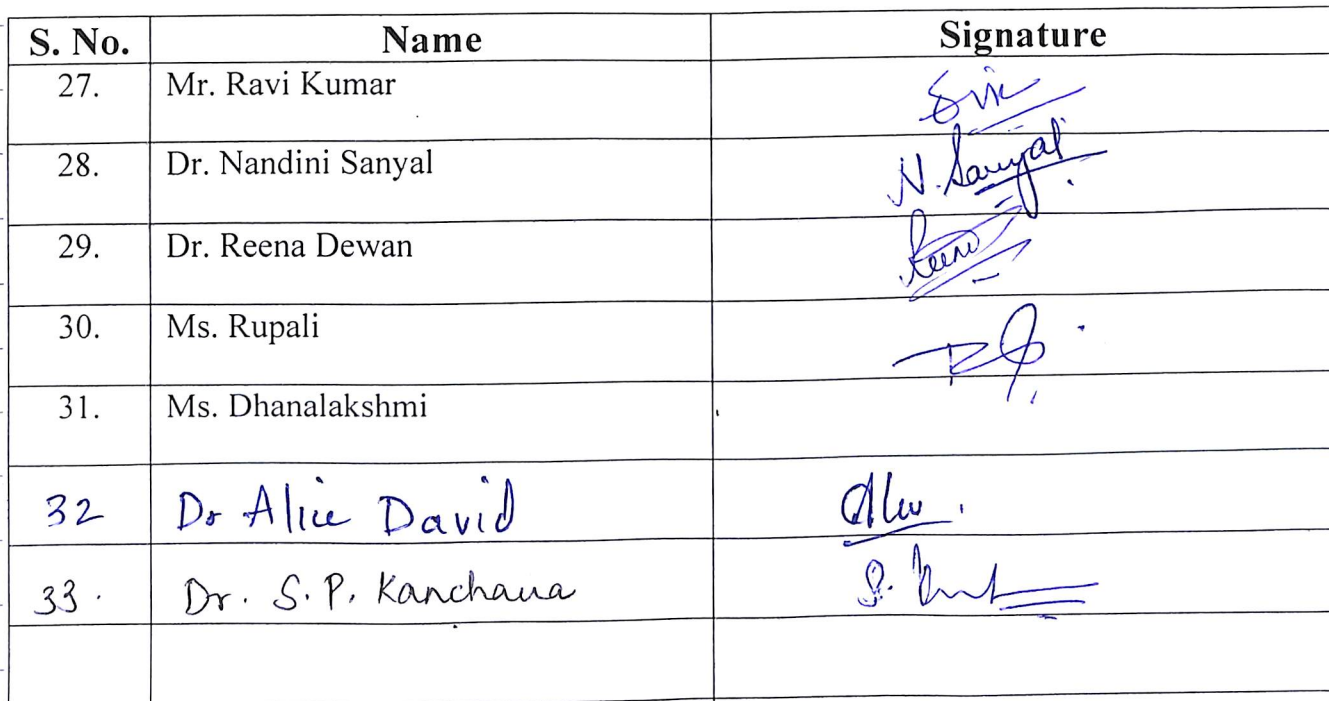 S. No. Name Signature
27. Mr. Ravi Kumar
28. Dr. Nandini Sanyal N. Sanyal
29. Dr. Reena Dewan Reena
30. Ms. Rupali
31. Ms. Dhanalakshmi
32 Dr Alice David
33. Dr. S. P. Kanchana